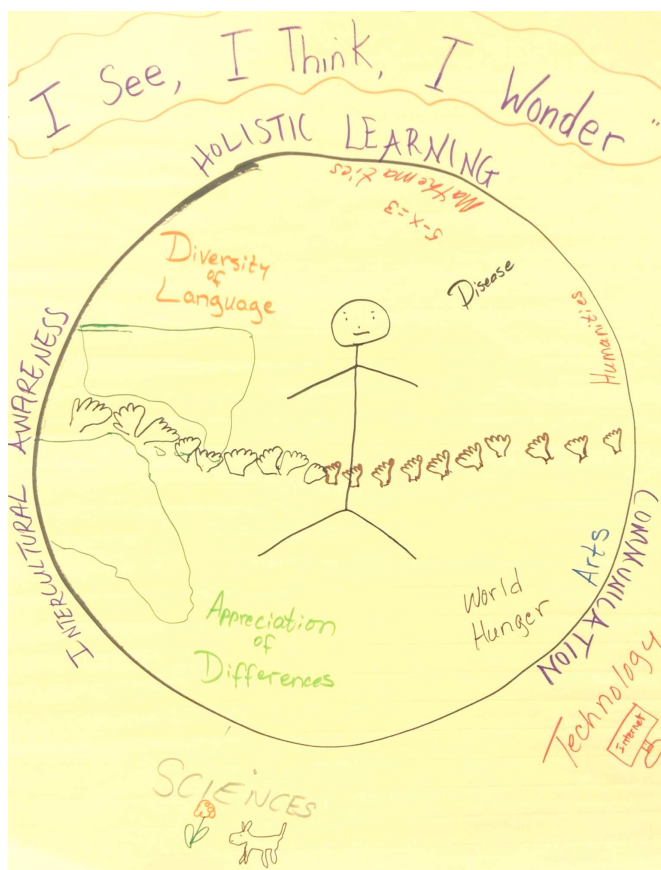 I See, I Think, I Wonder"
HOLISTIC LEARNING
Mathematics
5-x=3
Diversity
of
Language
Disease
Humanities
INTERCULTURAL AWARENESS
COMMUNICATION
Arts
World
Hunger
Appreciation
of
Differences
Technology
Internet
SCIENCES